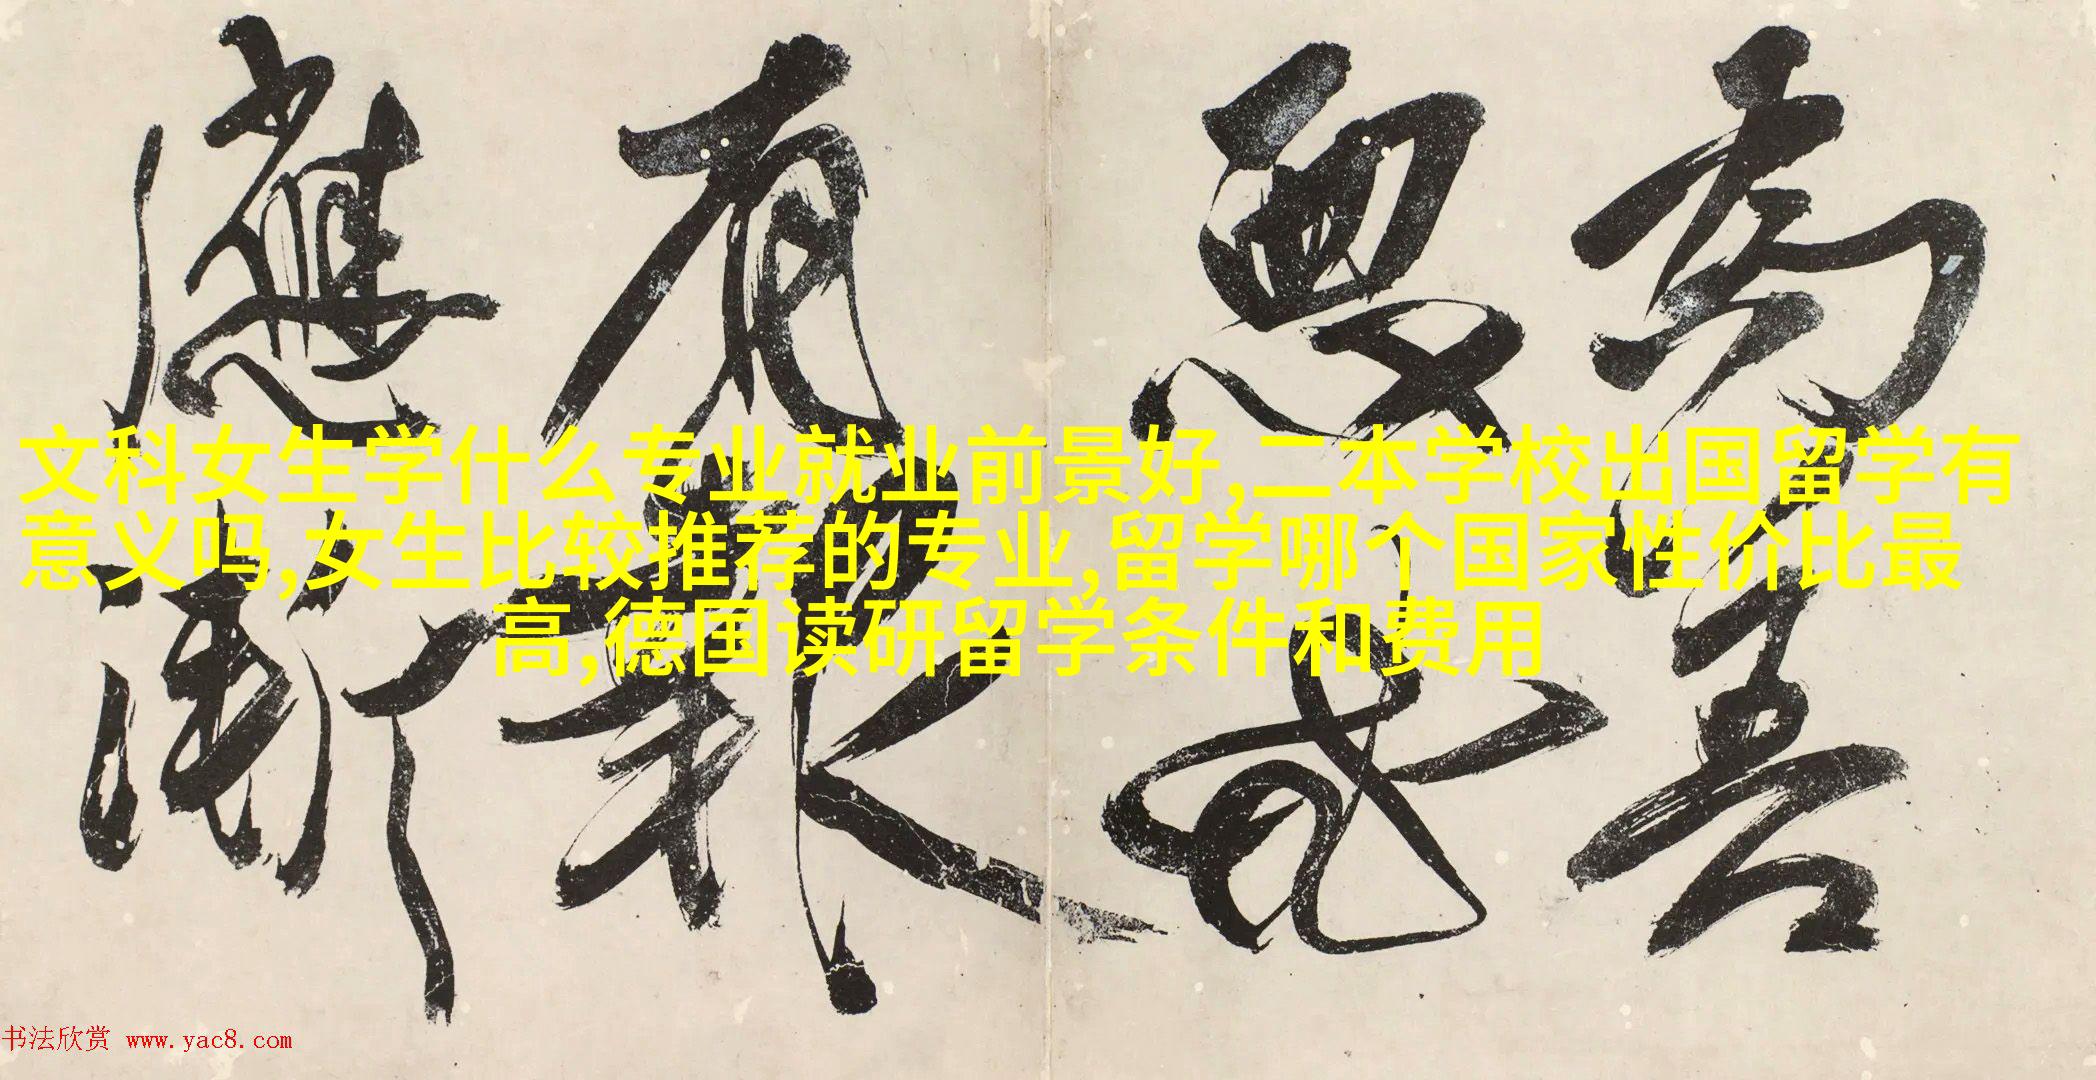 为善
要武
有报
應漸
文科女生学什么专业就业前景好,二本学校出国留学有
意义吗,女生比较推荐的专业,留学哪个国家性价比最
高,德国读研留学条件和费用
书法欣赏 www.yac8.com